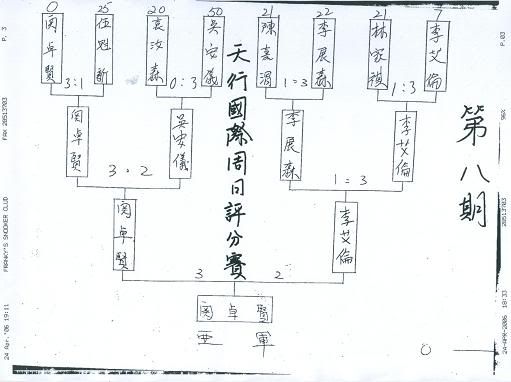 第八期
天行國際周日評分賽
0 25 20 50 21 22 21 7
関卓賢
袁汝森
吳安儀
李展森
林家祺
李艾倫
3:1 0:3 1=3 1:3
関卓賢
吳安儀
李展森
李艾倫
3:2 1=3
関卓賢
李艾倫
3 2
関卓賢
軍
0
24 Apr.'06 19:11 FRANKY'S SNOOKER CLUB FAX 28513703 P. 3
24-APR-2006 18:33 28513703 P.03